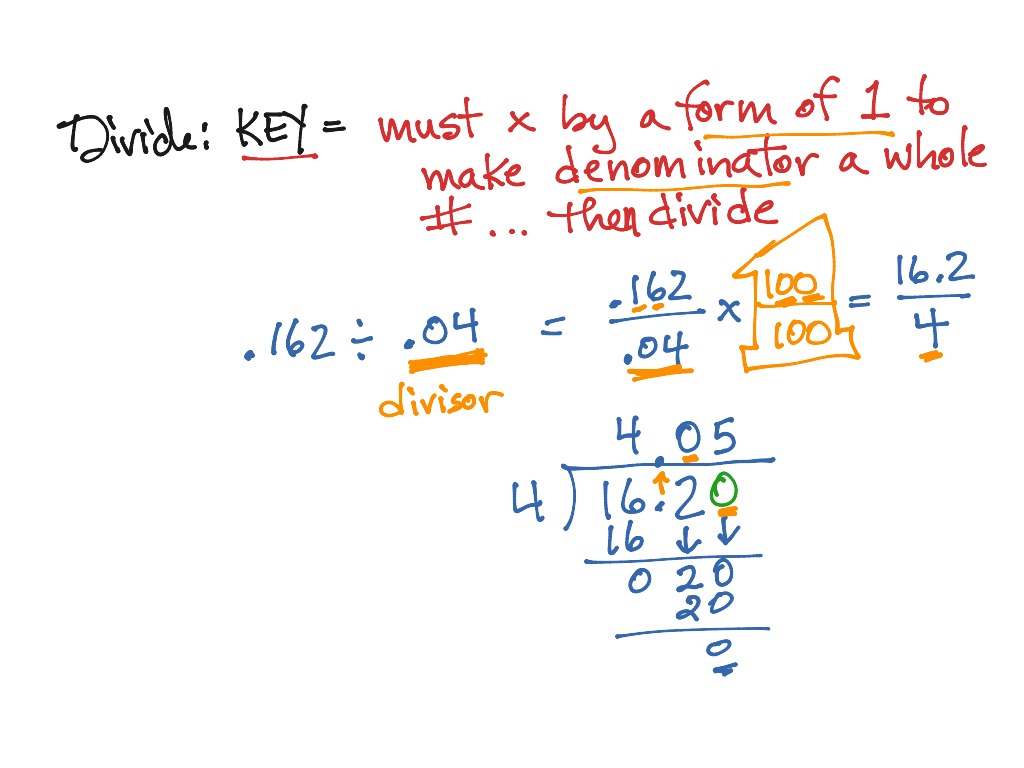 Divide: KEY = must x by a form of 1 to
make denominator a whole
# ... then divide
.162 ÷ .04 = .162/.04 x 100/100 = 16.2/4
divisor
4.05
4)16.20
16
0 20
20
0